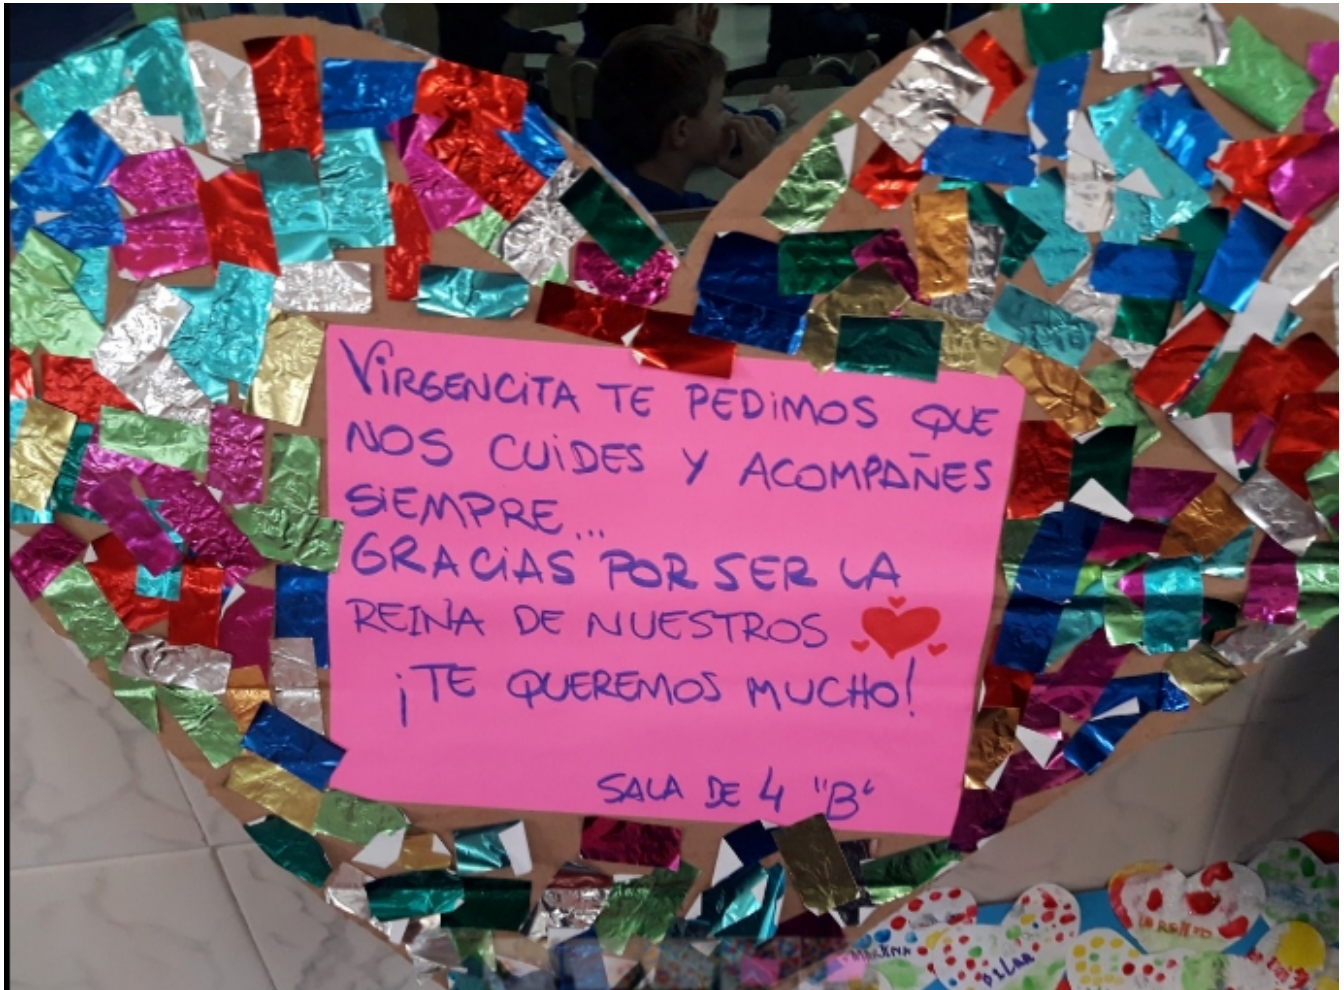 VIRGENCITA TE PEDIMOS QUE
NOS CUIDES Y ACOMPAÑES
SIEMPRE...
GRACIAS POR SER LA
REINA DE NUESTROS
¡TE QUEREMOS MUCHO!
SALA DE 4 "B"
PILAR